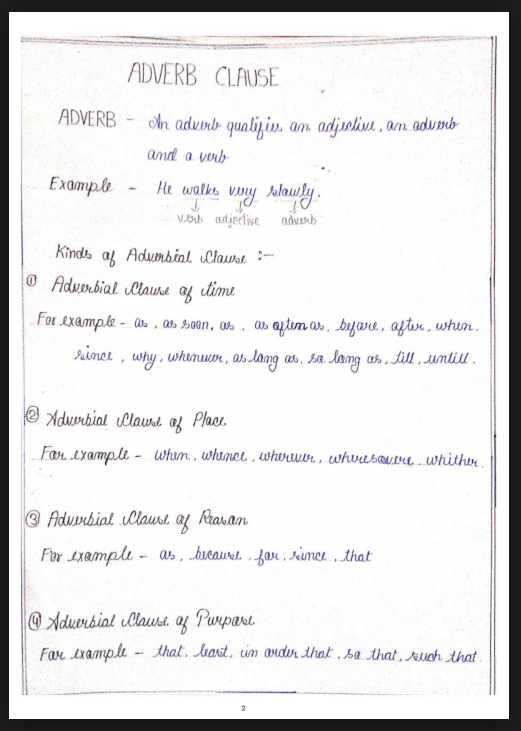 ADVERB CLAUSE
ADVERB - An adverb qualifies an adjective, an adverb
and a verb
Example - He walks very slowly.
verb adjective adverb
Kinds of Adverbial Clause :-
① Adverbial Clause of time
For example - as, as soon, as, as often as, before, after, when,
since, why, whenever, as long as, so long as, till, untill.
② Adverbial Clause of Place
For example - when, whence, wherever, wheresovere, whither.
③ Adverbial Clause of Reason
For example - as, because, for, since, that
④ Adverbial Clause of Purpose
For example - that, least, in order that, so that, such that.
2